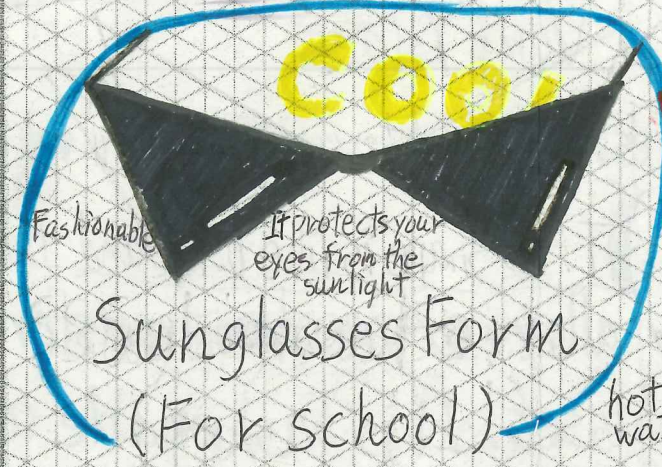 Cool
Fashionable
It protects your
eyes from the
sunlight
Sunglasses Form
(For school)
hot
wa